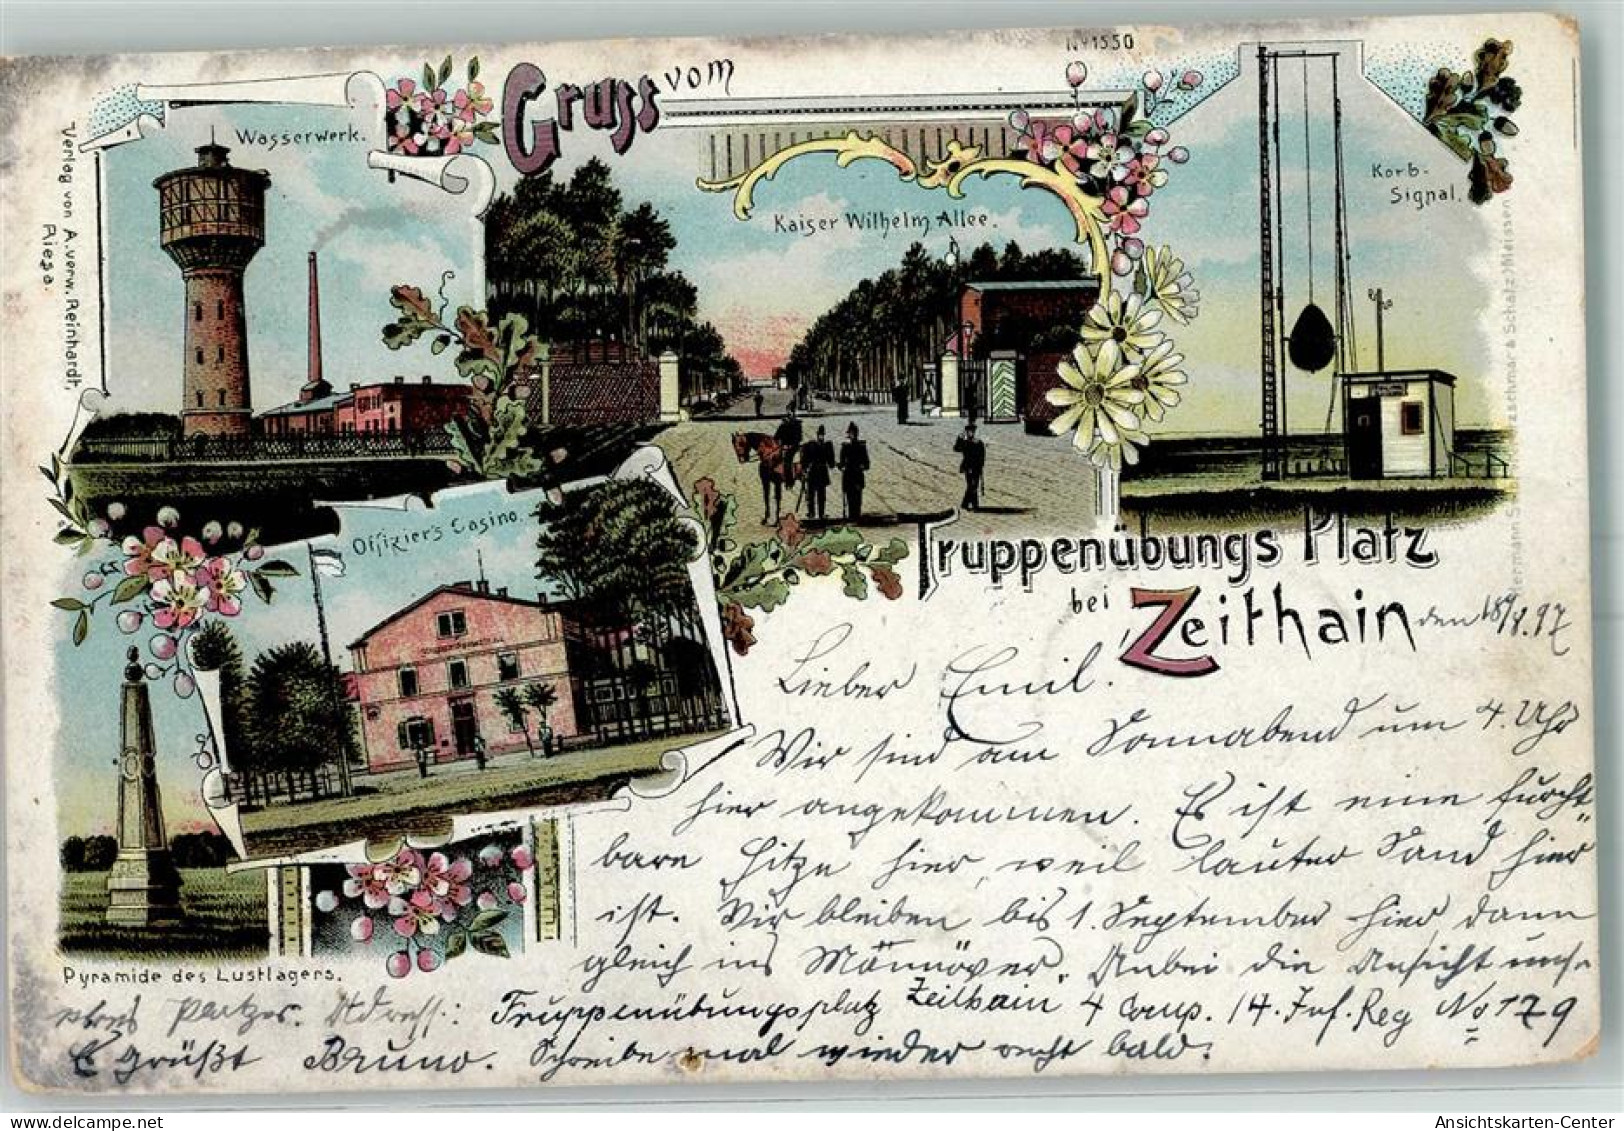 No 1550
Gruss vom
Wasserwerk.
Kaiser Wilhelm Allee.
Korb-
Signal.
Verlag von A. verw. Reinhardt,
Riesa.
Offizier's Casino.
Truppenübungs Platz
bei Zeithain
Pyramide des Lustlagers.
den 18/VIII.97
Lieber Emil!
Wir sind am Sonnabend um 4. Uhr
hier angekommen. Es ist eine furcht„
bare Hitze hier, weil lauter Sand hier
ist. Wir bleiben bis 1. September hier, dann
gleich ins Mannöver. Anbei die Ansicht uns-
Platzes. Adress.: Truppenübungsplatz Zeithain 4 Comp. 14. Inf. Reg No 179
Es grüßt Bruno. Schreibe mal wieder recht bald.
Ansichtskarten-Center